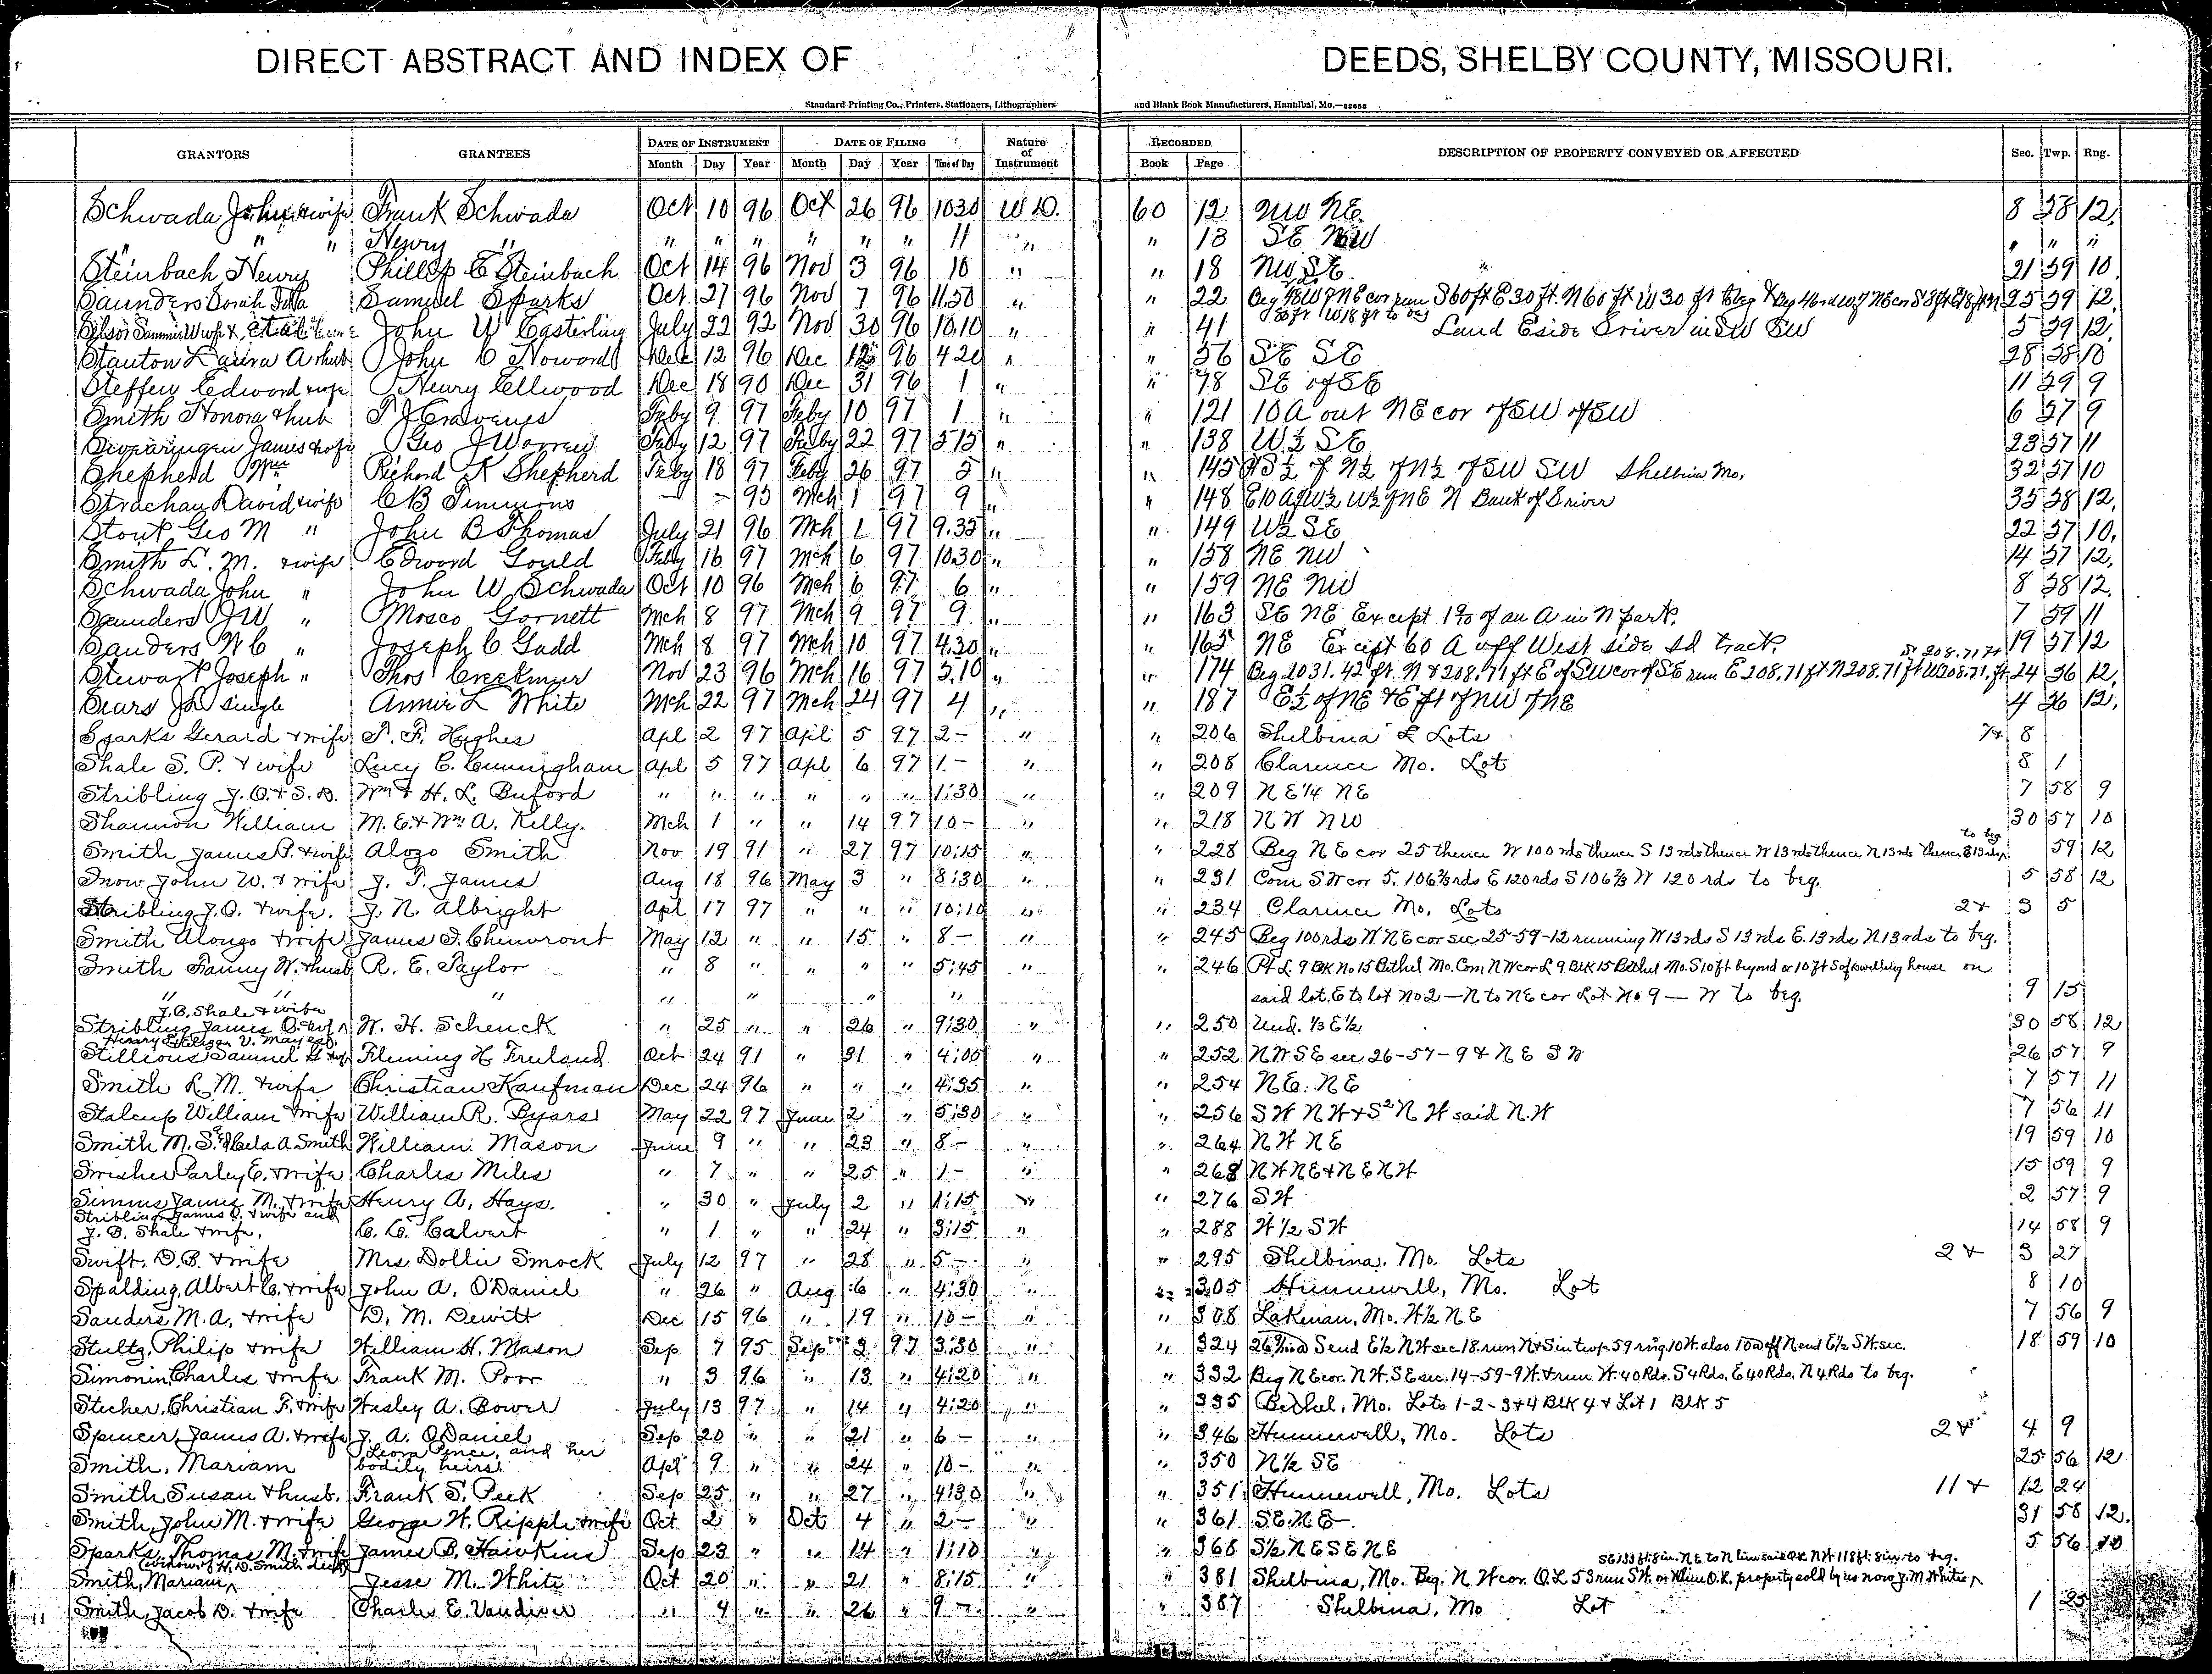 DIRECT ABSTRACT AND INDEX OF DEEDS, SHELBY COUNTY, MISSOURI.
Standard Printing Co., Printers, Stationers, Lithographers and Blank Book Manufacturers, Hannibal, Mo.—82656
GRANTORS GRANTEES DATE OF INSTRUMENT DATE OF FILING Nature of Instrument RECORDED DESCRIPTION OF PROPERTY CONVEYED OR AFFECTED Sec. Twp. Rng.
Month Day Year Month Day Year Time of Day Book Page
Schwada John & wife Frank Schwada Oct 10 96 Oct 26 96 1030 W D. 60 12 NW NE. 8 58 12
" " " Henry " " " " " " " 11 " " 13 SE NW " " "
Steinbach Henry Phillip C Steinbach Oct 14 96 Nov 3 96 10 " " 18 NW SE 21 59 10
Saunders Samuel Sparks Oct 27 96 Nov 7 96 11.50 " " 22 S 60 ft E 30 ft. N 60 ft W 30 ft 25 59 12
John W Easterling July 22 92 Nov 30 96 10.10 " " 41 Land E side in SW SW 5 59 12
Stanton Laura A & hub John C Noword Dec 12 96 Dec 96 4 20 " " 56 SE SE 28 58 10
Steffen Edword & wife Henry Ellwood Dec 18 90 Dec 31 96 1 " " 78 SE of SE 11 59 9
Smith Honora & hub T J Cravens Feby 9 97 Feby 10 97 1 " " 121 10 A out NE cor of SW of SW 6 57 9
James & wife Geo J Worren Feby 12 97 Feby 22 97 5 15 " " 138 W ½ SE 23 57 11
Shepherd Wm Richord K Shepherd Feby 18 97 Feby 26 97 5 " " 145 S ½ of N ½ of N ½ of SW SW Shelbina Mo. 32 57 10
Strachan David & wife C B Timmons — - 95 Mch 1 97 9 " " 148 E 10 A of W ½ W ½ of NE N Bank of 35 58 12
Stout Geo M " John B Thomas July 21 96 Mch 1 97 9.35 " " 149 W ½ SE 22 57 10
Smith L. M. & wife Edword Gould Feby 16 97 Mch 6 97 1030 " " 158 NE NW 14 57 12
Schwada John " John W Schwada Oct 10 96 Mch 6 97 6 " " 159 NE NW 8 58 12
Saunders J W " Mosco Gornett Mch 8 97 Mch 9 97 9 " " 163 SE NE Except of an A in N part. 7 59 11
Sanders W C " Joseph C Gadd Mch 8 97 Mch 10 97 4.30 " " 165 NE Except 60 A off West side sd tract. 19 57 12
S 208.71 ft
Stewart Joseph " Thos Creekmur Nov 23 96 Mch 16 97 5.10 " " 174 Beg 1031.42 ft. N & 208.71 ft E of SW cor of SE run E 208.71 ft N 208.71 ft W 208.71 ft 24 56 12
Sears single Annie L White Mch 22 97 Mch 24 97 4 " " 187 E ½ of NE & E pt of NW of NE 4 56 12
Sparks Gerard & wife P. F. Hughes Apl 2 97 April 5 97 2 - " " 206 Shelbina Lots 7 & 8
Shale S. P. & wife Lucy C. Cunningham Apl 5 97 Apl 6 97 1.- " " 208 Clarence Mo. Lot 8 1
Stribling J. O. & S. D. Wm & H. L. Buford " " " " " " 1:30 " " 209 N E ¼ NE 7 58 9
Shannon William M. E. & Wm A. Kelly. Mch 1 " " 14 97 10 - " " 218 N W NW 30 57 10
to beg
Smith James P. & wife Alozo Smith Nov 19 91 " 27 97 10:15 " " 228 Beg N E cor 25 thence W 100 rds thence S 13 rds thence W 13 rds thence N 13 rds thence E 13 rds 59 12
Snow John W. & wife J. T. James Aug 18 96 May 3 " 8:30 " " 231 Com S W cor 5, 106⅔ rds E 120 rds S 106⅔ W 120 rds to beg. 5 58 12
Stribling J. O. & wife. J. N. Albright Apl 17 97 " " " 10:10 " " 234 Clarence Mo. Lots 2 & 3 5
Smith Alonzo & wife James I. Chenvront May 12 " " 15 " 8 - " " 245 Beg 100 rds W N E cor sec 25-59-12 running W 13 rds S 13 rds E. 13 rds N 13 rds to beg.
Smith Fanny W. & husb R. E. Taylor " 8 " " " " 5:45 " " 246 Pt L. 9 Blk No 15 Bethel Mo. Com N W cor L 9 Blk 15 Bethel Mo. S 10 ft beyond or 10 ft S of dwelling house on
" " " " " " " said lot, E to lot No 2 — N to NE cor Lot No 9 — W to beg. 9 15
J. C. Shale & wife
Stribling James O. & wf W. H. Schenck " 25 " " 26 " 9:30 " " 250 Und. ⅓ E ½ 30 58 12
Stillions Samuel G & wife Fleming H. Fruland Oct 24 91 " 31 " 4:00 " " 252 N W S E sec 26-57-9 & N E S W 26 57 9
Smith L. M. & wife Christian Kaufman Dec 24 96 " " " 4:35 " " 254 N E. N E 7 57 11
Stalcup William & wife William R. Byars May 22 97 June 2 " 5:30 " " 256 S W N W & S ² N W said N. W 7 56 11
Smith M. S. & Hela A. Smith William Mason June 9 " " 23 " 8 - " " 264 N W N E 19 59 10
Swisher Parley E. & wife Charles Miles " 7 " " 25 " 1 - " " 268 N W N E & N E N W 15 59 9
Simms James M. & wife Henry A. Hays. " 30 " July 2 " 1:15 " " 276 S W 2 57 9
Stribling James O. & wife and
J. C. Shale & wife. C. C. Calvert " 1 " " 24 " 3:15 " " 288 W ½ S W 14 58 9
Swift. D. B. & wife Mrs Dollie Smock July 12 97 " 28 " 5 - " " 295 Shelbina, Mo. Lots 2 & 3 27
Spalding, Albert C. & wife John A. O'Daniel " 26 " Aug 6 " 4:30 " " 305 Hunnewell, Mo. Lot 8 10
Sanders M. A, & wife D. M. Dewitt Dec 15 96 " 19 " 10 - " " 308 Lakenan, Mo. W ½ N E 7 56 9
Stultz, Philip & wife William H. Mason Sep 7 95 Sep 3 97 3:30 " " 324 S end E ½ N W sec 18. run N & S in twp 59 rng. 10 W. also 10 a off N end E ½ S W. sec. 18 59 10
Simonin, Charles & wife Frank M. Poor " 3 96 " 13 " 4:20 " " 332 Beg N E cor. N W. S E sec. 14-59-9 W. & run W. 40 Rds. S 4 Rds. E 40 Rds. N 4 Rds to beg.
Stecher, Christian F. & wife Wesley A. Bower July 13 97 " 14 " 4:20 " " 335 Bethel, Mo. Lots 1-2-3 & 4 Blk 4 & Lot 1 Blk 5
Spencer, James A. & wife J. A. O'Daniel Sep 20 " " 21 " 6 - " " 346 Hunnewell, Mo. Lots 2 & 4 9
Leora Pence, and her
Smith, Mariam bodily heirs. Apl 9 " " 24 " 10 - " " 350 N ½ S E 25 56 12
Smith Susan & husb. Frank S. Peck Sep 25 " " 27 " 4:30 " " 351 Hunnewell, Mo. Lots 11 & 12 24
Smith, John M. & wife George W. Ripple & wife Oct 2 " Oct 4 " 2 - " " 361 S E. N E 31 58 12.
Sparks, Thomas M. & wife James B. Hawkins Sep 23 " " 14 " 1:10 " " 368 S ½ N E S E N E 5 56 10
(widow of H. D. Smith decd) S E 133 ft. 8 in. N E to N line said O L N W 118 ft. 8 in. to beg.
Smith, Mariam Jesse M. White Oct 20 " " 21 " 8:15 " " 381 Shelbina, Mo. Beg. N W cor. O. L 53 run S W. on W line O. L. property sold by us now J. M. White's
Smith, Jacob D. & wife Charles E. Vandiver " 4 " " 26 " 9 - " " 387 Shelbina, Mo Lot 1 25